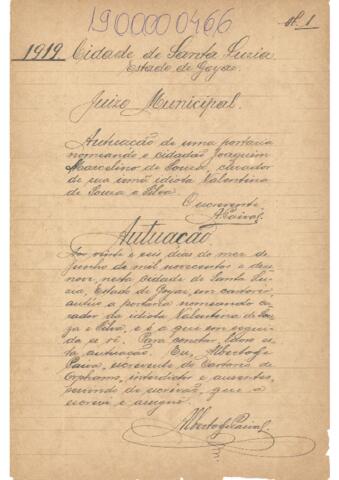 190000466
fl. 1
1919 Cidade de Santa Luzia
Estado de Goyaz.
Juizo Municipal.
Autuação de uma portaria
nomeando o cidadão Joaquim
Marcelino de Souza, curador
de sua irmã idiota Valentina
de Souza e Silva.
O escrevente
APaiva.
Autuação
Aos vinte e seis dias do mez de
Junho de mil novecentos e deze
nove, nesta cidade de Santa Lu
zia, Estado de Goyaz, em cartorio,
autúo a portaria nomeando cu
rador da idiota Valentina de Sou
za e Silva, e é a que em segui
da se vê. Para constar, lavro es
ta autuação. Eu, Alberto
Paiva, escrevente do Cartorio de
Orphams, interdictos e ausentes,
servindo de escrivão, que a
escrevi e assigno.
Alberto Paiva.